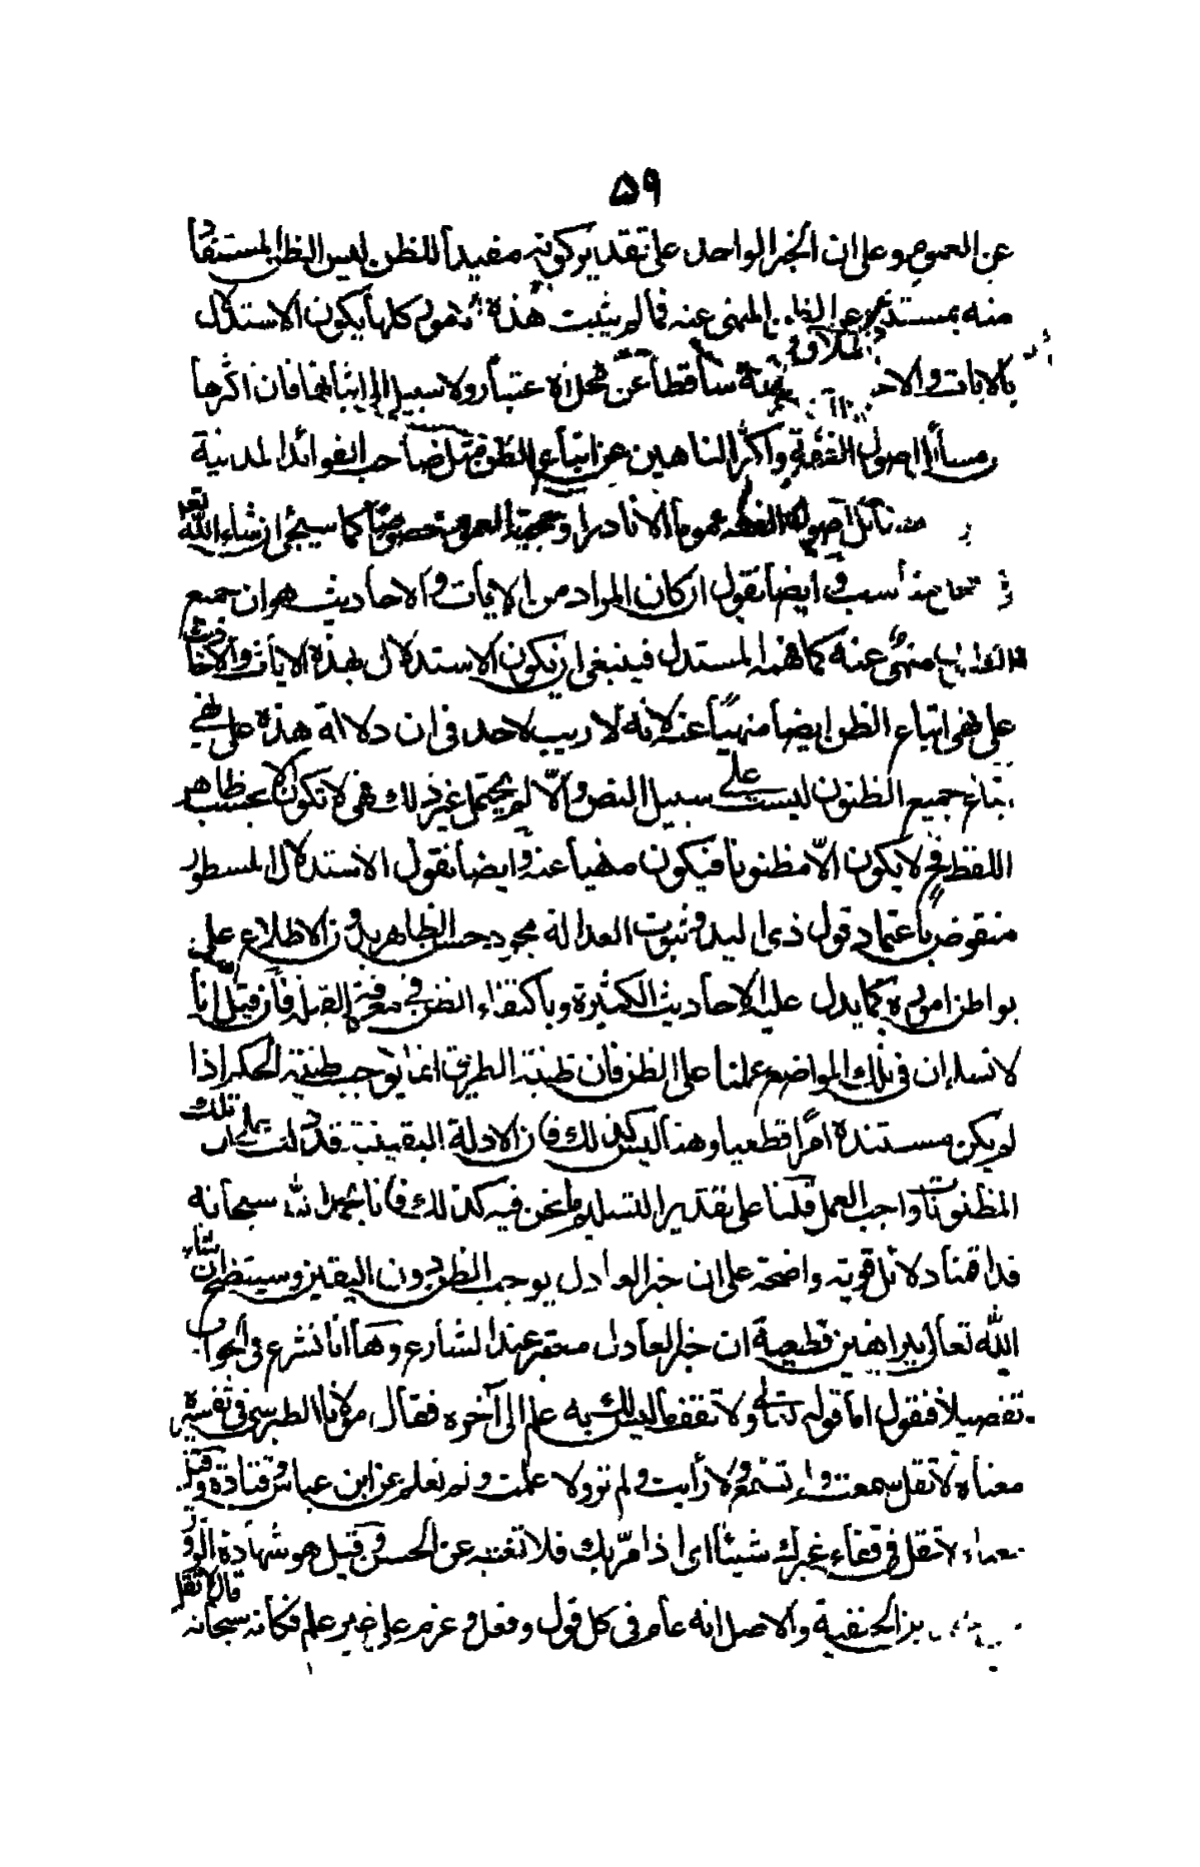 ۵۹
عن العموم وعلى ان الخبر الواحد على تقدير كونه مفيداً للظن ليس الظن المستفاد
منه بمستند عن المنهى عنه فما لم يثبت هذه كلها يكون الاستدلال
بالايات والاحا ساقطاً عن اعتبار ولا سبيل الى اثباتها فان اكثرها
مسائل اصول الفقه واكثر الناهين عن اتباع الظن مثل صاحب الفوائد المدنية
اصول الفقه عموماً الا نادرا وحجية العموم خصوصاً كما سيجئ انشاء الله تعالى
وايضاً نقول ان كان المراد من الايات والاحاديث هو ان جميع
منهى عنه كما فهمه المستدل فينبغى ان يكون الاستدلال بهذه الايات والاحاديث
على نهى اتباع الظن ايضاً منهياً عنه لانه لا ريب لاحد فى ان دلالة هذه على نهى
اتباع جميع الظنون ليست على سبيل النص والّا لم يحتمل غير ذلك فهى لا تكون الا بحسب ظاهر
اللفظ فح لا يكون الّا مظنونا فيكون منهياً عنه وايضاً نقول الاستدلال المسطور
منقوض باعتماد قول ذى اليد وثبوت العدالة بمجرد حسن الظاهر بدون الاطلاع على
بواطن اموره كما يدل عليه الاحاديث الكثيرة وباكتفاء الظن فى معرفة القبلة فان قيل انّا
لا نسلم ان فى تلك المواضع عملنا على الظن فان ظنية الطريق انما توجب ظنية الحكم اذا
لم يكن مستنده امراً قطعيا وهذا ليس كذلك فان الادلة اليقينية قد دلت على ان تلك
المظنونات واجب العمل قلنا على تقدير التسليم ما نحن فيه كذلك فانا بحمد الله سبحانه
قد اقمنا دلائل قوية واضحة على ان خبر العادل يوجب الظن دون اليقين وسيتضح ان شاء
الله تعالى ببراهين قطيعية ان خبر العادل معتبر عند الشارع وها انا نشرع فى الجواب
تفصيلاً فنقول اما قوله تعالى ولا تقف ما ليس لك به علم الى آخره فقال مولانا الطبرسى فى تفسيره
معناه لا تقل سمعت ولم تسمع ولا رأيت ولم تر ولا علمت ولم تعلم عن ابن عباس وقتادة وقيل
معناه لا تقل فى قفاء غيرك شيئاً اى اذا مرّ بك فلا تغتبه عن الحسن وقيل هو شهادة الزور
بن الحنفية والاصل انه عام فى كل قول وفعل وعزم على غير علم فكانه سبحانه قال لا تقل